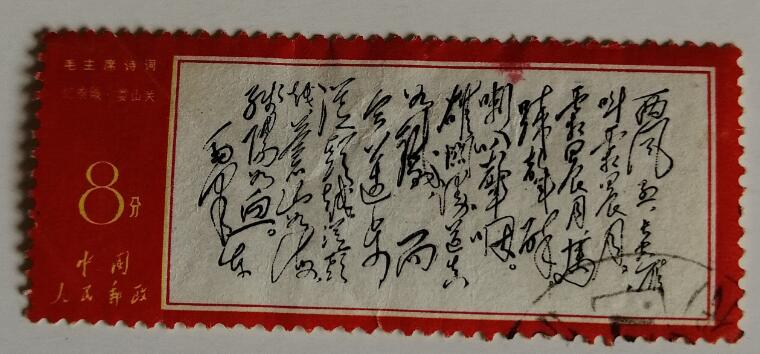 毛主席诗词
忆秦娥·娄山关
8分
中国
人民邮政
西风烈，长空雁
叫霜晨月。
霜晨月，马
蹄声碎
喇叭声咽。
雄关漫道真
如铁，而
今迈步
从头越从头
越苍山如海
残阳如血。
毛泽东